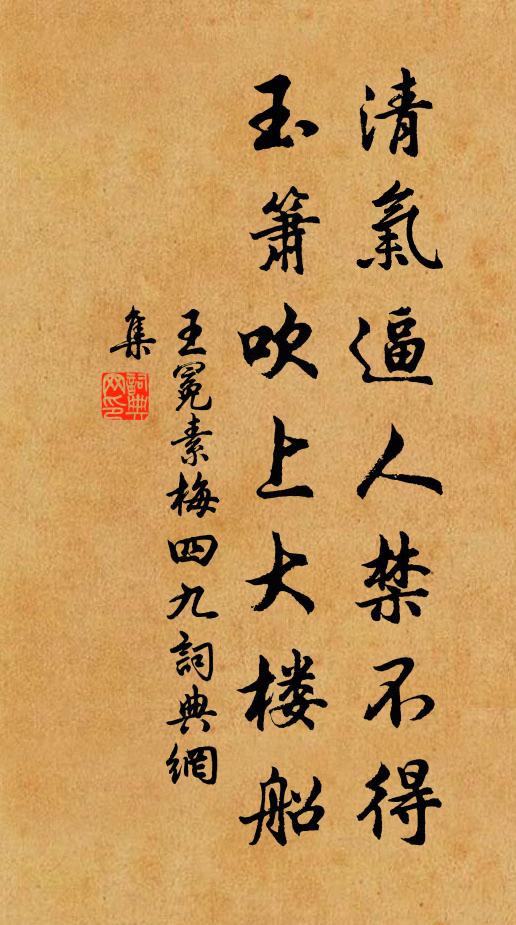 清氣逼人禁不得
玉簫吹上大楼船
王冕素梅四九詞典網
集
詞典
网印